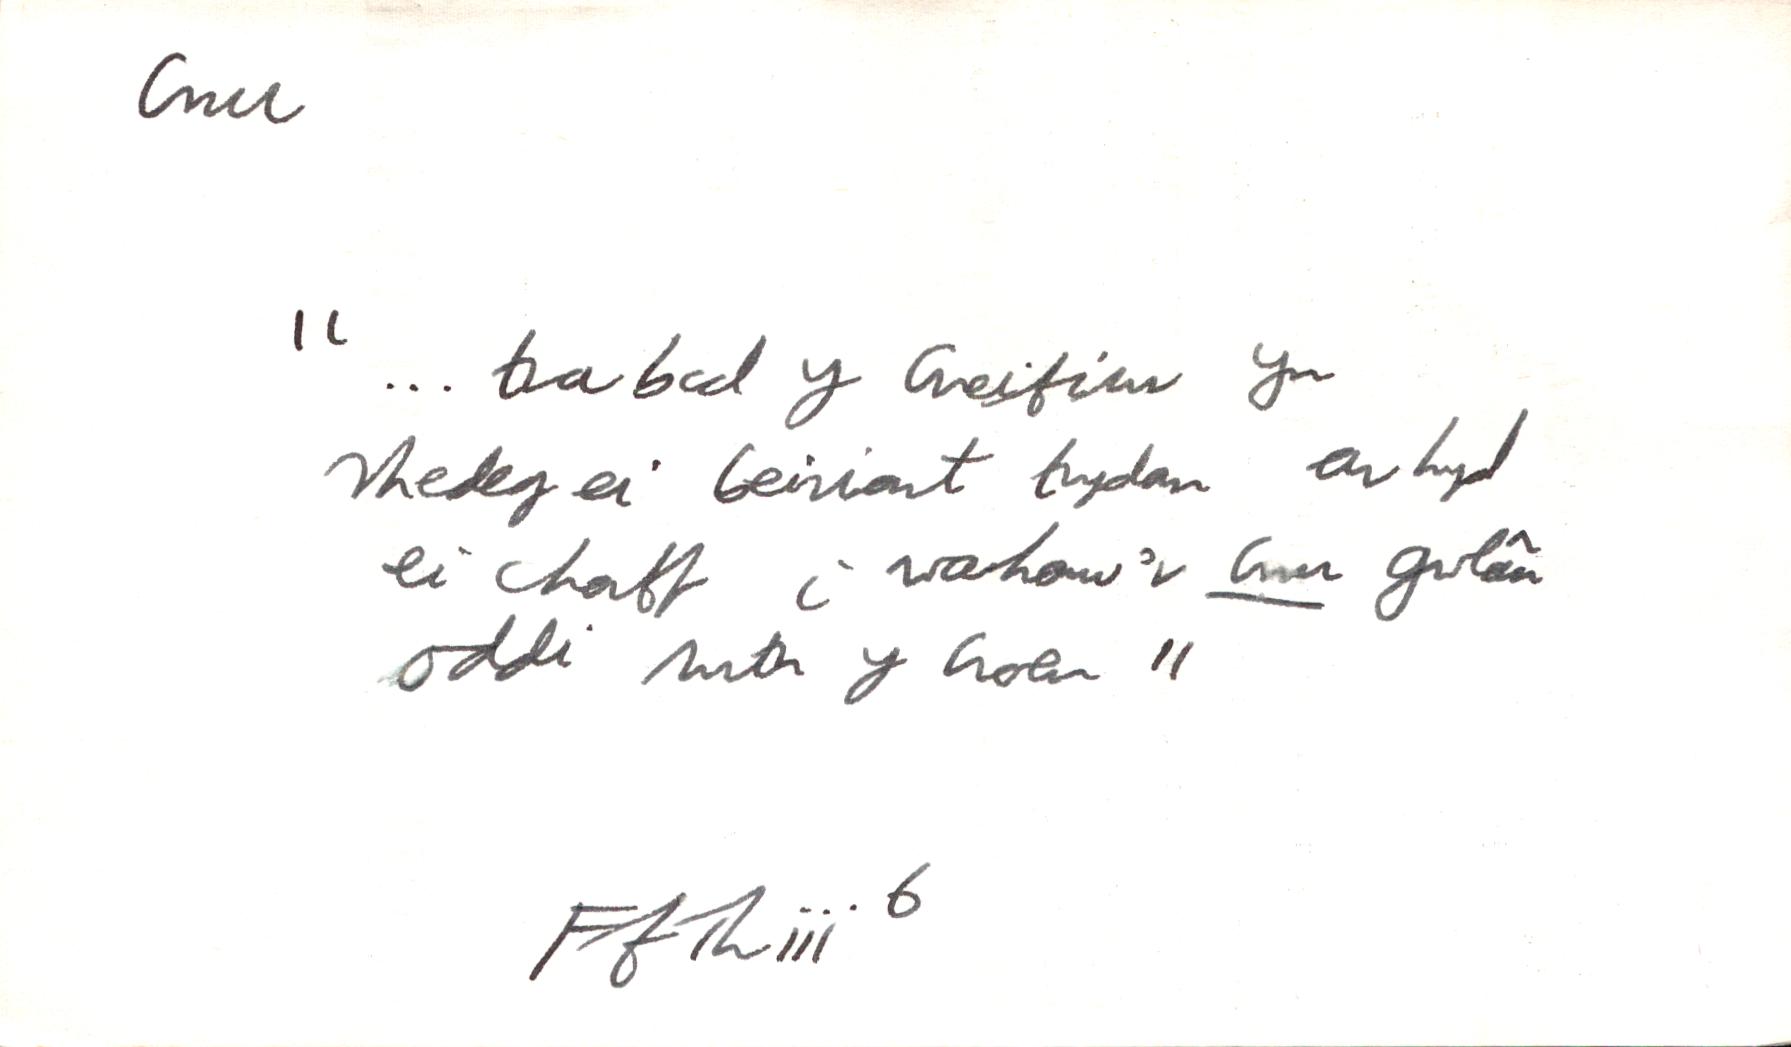 Cnu
"... tra bod y Cneifiwr yn
rhedeg ei beiriant trydan ar hyd
ei chorff i wahanu'r cnu gwlân
oddi wrth y croen"
FfTh iii 6